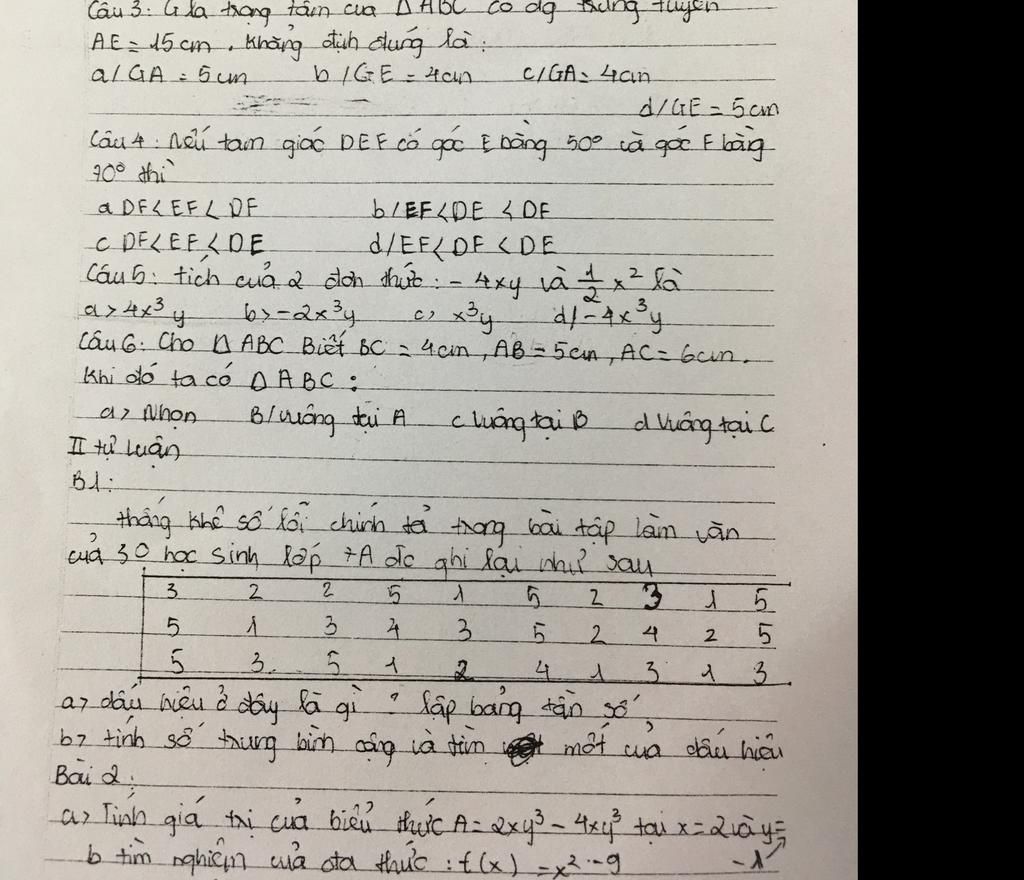 Câu 3: G là trọng tâm của Δ ABC có đg trung tuyến
AE = 15cm. Khẳng định đúng là:
a/ GA = 5cm b/ GE = 4cm c/ GA = 4cm
d/ GE = 5cm
Câu 4: Nếu tam giác DEF có góc E bằng 50° và góc F bằng
70° thì
a DF < EF < DF b/ EF < DE < DF
c DF < EF < DE d/ EF < DF < DE
Câu 5: tích của 2 đơn thức: -4xy và 1/2 x² là
a> 4x³y b> -2x³y c> x³y d/ -4x³y
Câu 6: Cho Δ ABC Biết BC = 4cm, AB = 5cm, AC = 6cm.
Khi đó ta có Δ ABC:
a> Nhọn B/ vuông tại A c Vuông tại B d Vuông tại C
II tự luận
B1:
thống khê số lỗi chính tả trong bài tập làm văn
của 30 học sinh lớp 7A đc ghi lại như sau
3 2 2 5 1 5 2 3 1 5
5 1 3 4 3 5 2 4 2 5
5 3 5 1 2 4 1 3 1 3
a> dấu hiệu ở đây là gì? lập bảng tần số
b> tính số trung bình cộng và tìm mốt của dấu hiệu
Bài 2:
a> Tính giá trị của biểu thức A = 2xy³ - 4xy³ tại x = 2 và y =
-1
b tìm nghiệm của đa thức: f(x) = x² - 9